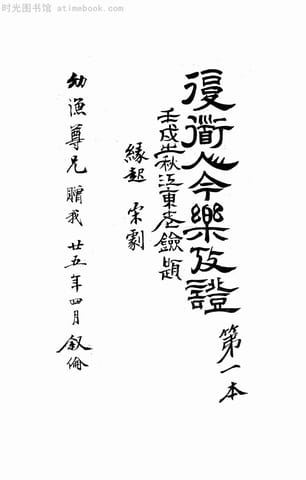 时光图书馆 - atimebook.com
復衜人今樂攷證 第一本
壬戌㞢秋江東老鐱題
緣起 宋劇
幼漁尊兄贈我 廿五年四月 叙倫